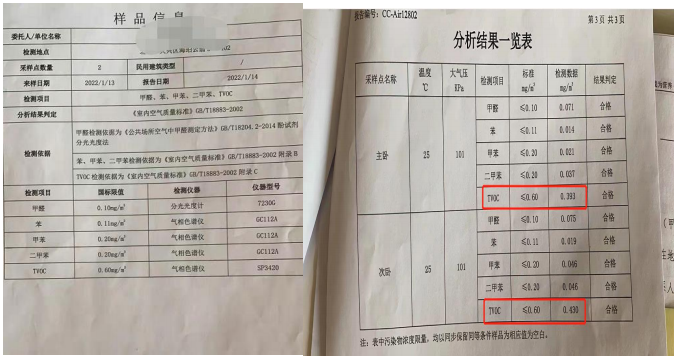 样品信息
委托人/单位名称
检测地点
采样点数量 2 民用建筑类型 /
来样日期 2022/1/13 报告日期 2022/1/14
检测项目 甲醛、苯、甲苯、二甲苯、TVOC
分析结果判定 《室内空气质量标准》GB/T18883-2002
检测依据
甲醛检测依据为《公共场所空气中甲醛测定方法》GB/T18204.2-2014 酚试剂
分光光度法
苯、甲苯、二甲苯检测依据为《室内空气质量标准》GB/T18883-2002 附录 B
TVOC 检测依据为《室内空气质量标准》GB/T18883-2002 附录 C
检测项目 国标限值 检测仪器 仪器型号
甲醛 0.10mg/m³ 分光光度计 7230G
苯 0.11mg/m³ 气相色谱仪 GC112A
甲苯 0.20mg/m³ 气相色谱仪 GC112A
二甲苯 0.20mg/m³ 气相色谱仪 GC112A
TVOC 0.60mg/m³ 气相色谱仪 SP3420
报告编号: CC-Air12802 第 3 页 共 3 页
分析结果一览表
采样点名称 温度 ℃ 大气压 KPa 检测项目 标准 mg/m³ 检测数据 mg/m³ 结果判定
主卧 25 101
甲醛 ≤0.10 0.071 合格
苯 ≤0.11 0.014 合格
甲苯 ≤0.20 0.021 合格
二甲苯 ≤0.20 0.037 合格
TVOC ≤0.60 0.393 合格
次卧 25 101
甲醛 ≤0.10 0.075 合格
苯 ≤0.11 0.019 合格
甲苯 ≤0.20 0.046 合格
二甲苯 ≤0.20 0.046 合格
TVOC ≤0.60 0.430 合格
注: 表中污染物浓度限量，均以同步保留同等条件样品为相应值为空白。